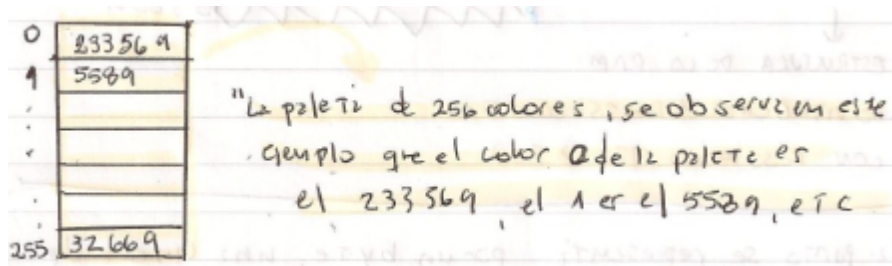 0 233569
1 5589
255 32669
"La paleta de 256 colores, se observa en este
ejemplo que el color 0 de la paleta es
el 233569, el 1 es el 5589, etc